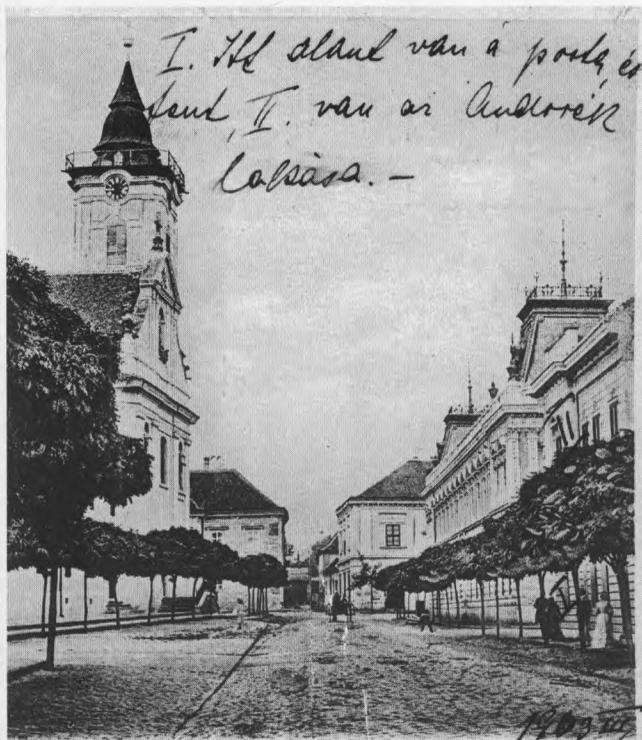 I. Itt alant van a posta, és
fent, II. van az Andorék
lakása. –
1903 III